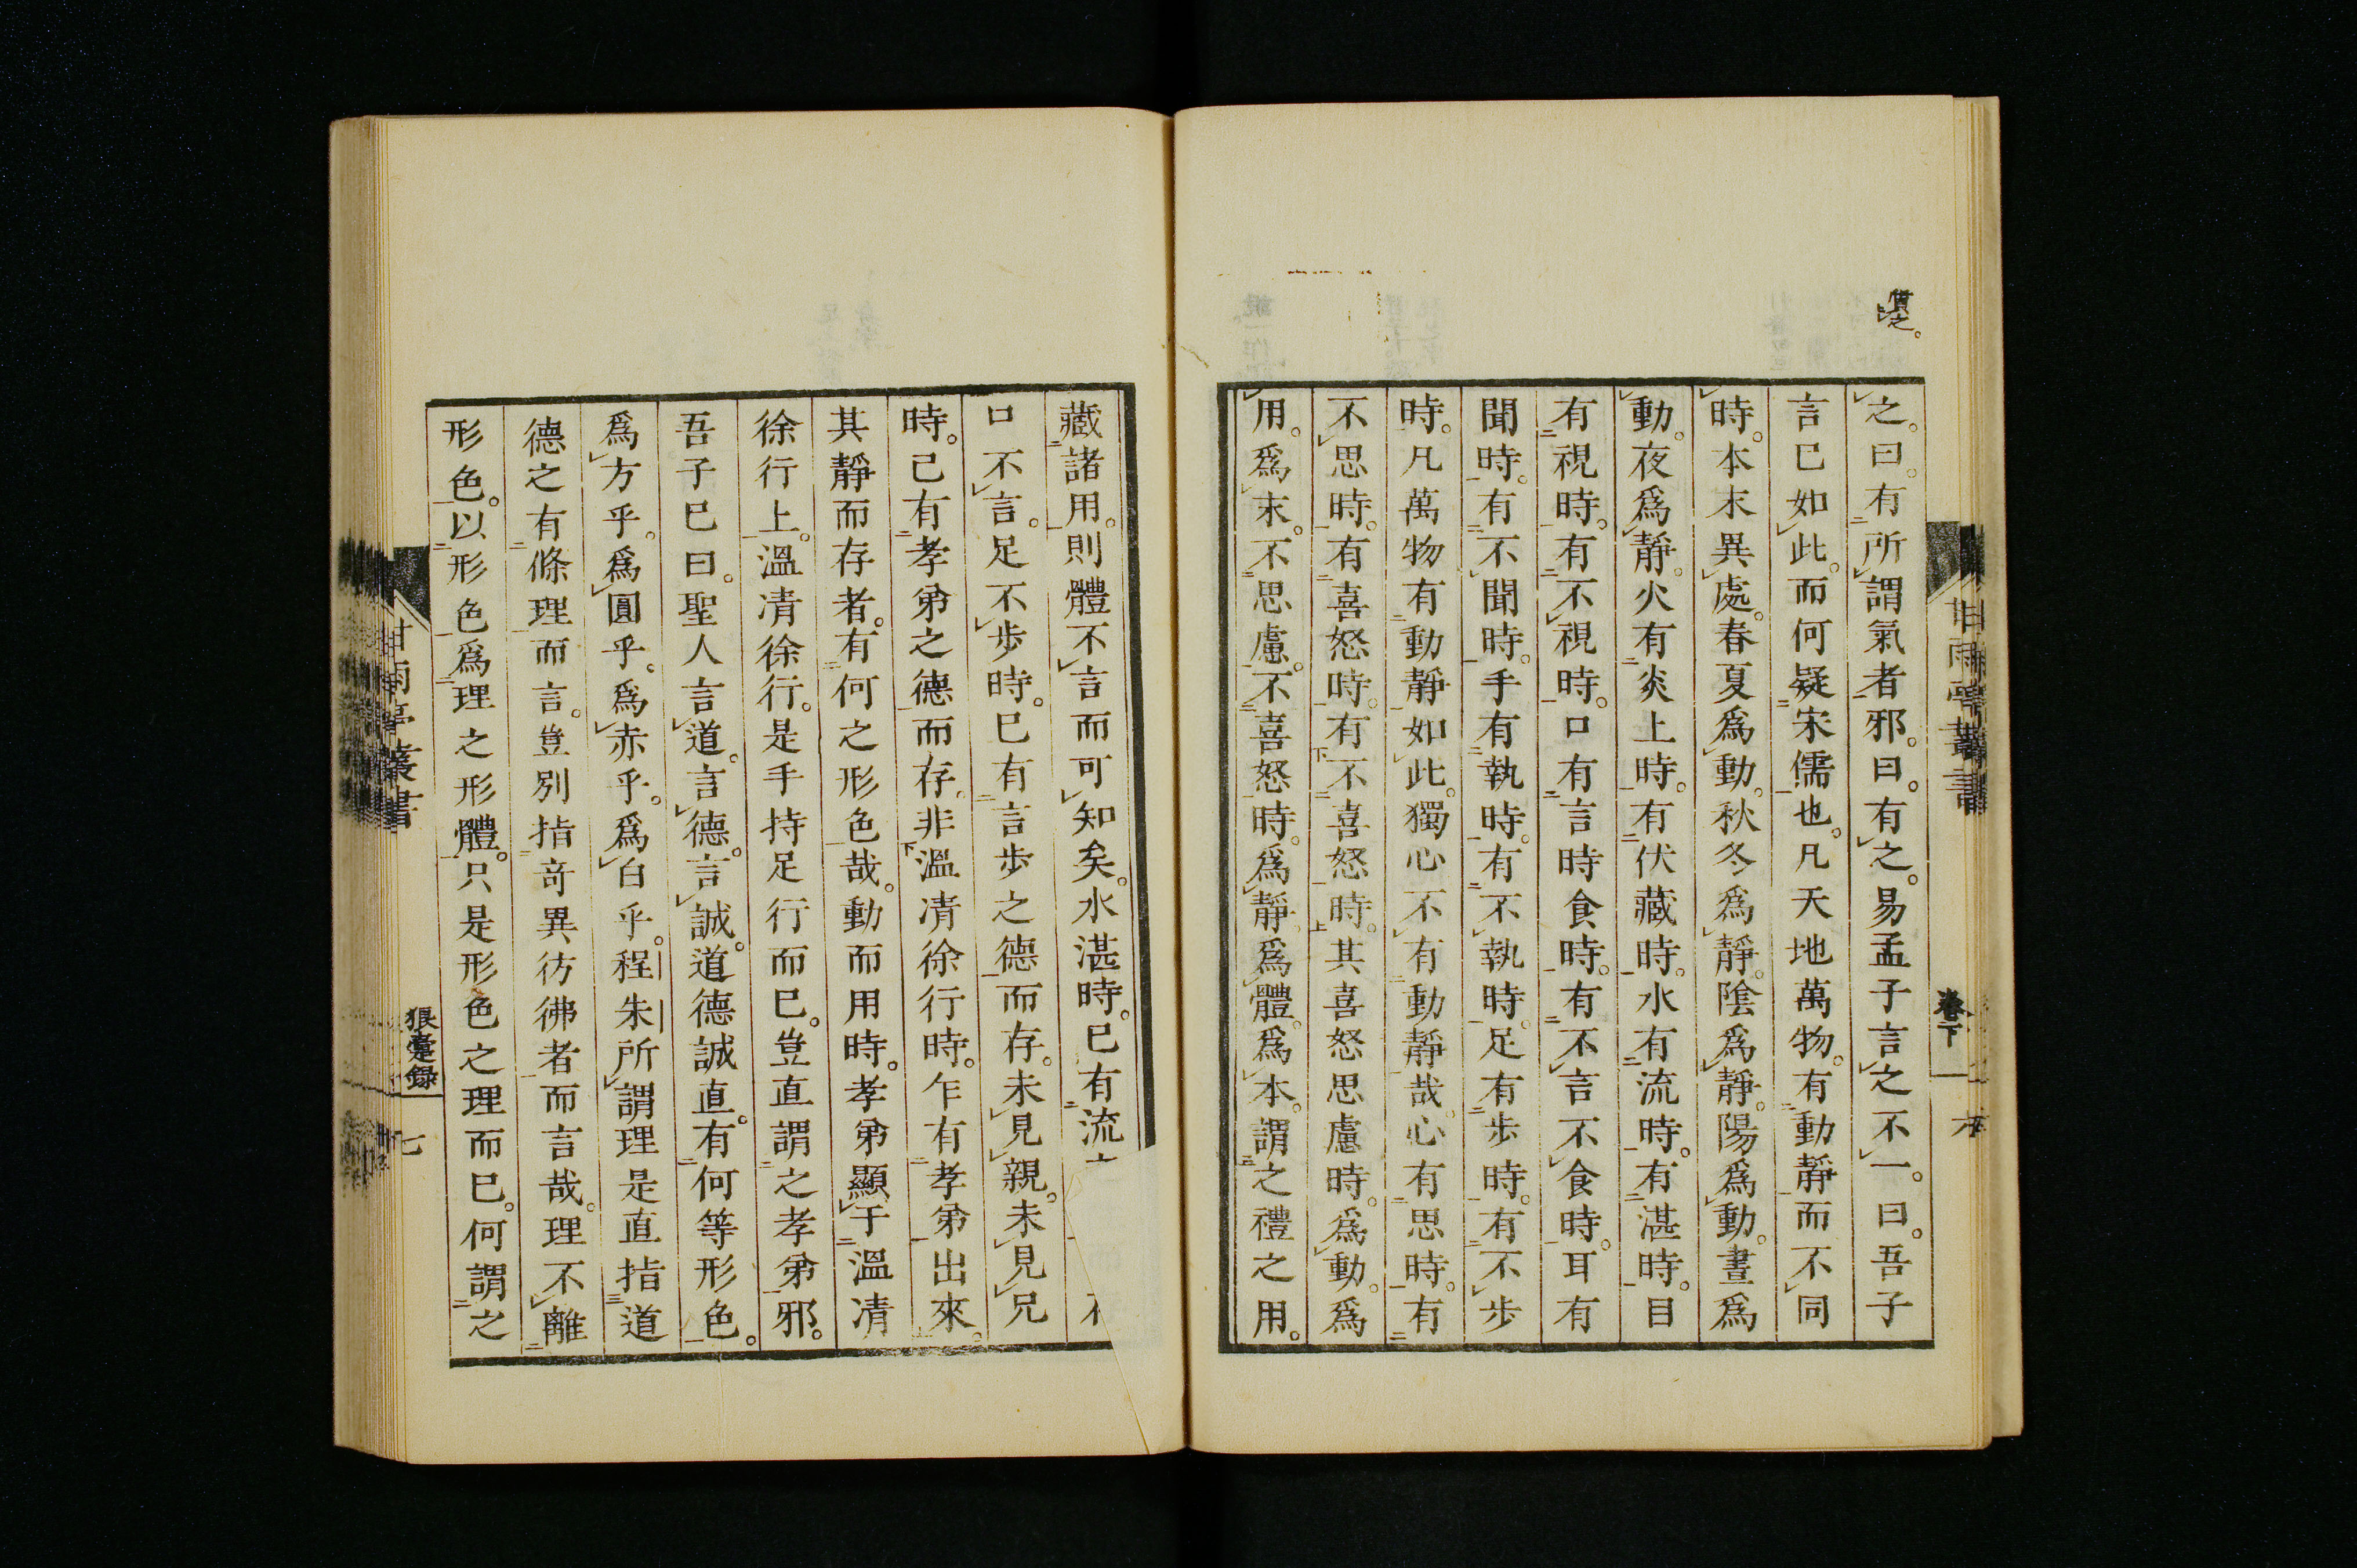 之。曰。有所謂氣者邪。曰。有之。易孟子言之不一。曰。吾子
言已如此。而何疑宋儒也。凡天地萬物。有動靜而不同
時。本末異處。春夏爲動。秋冬爲靜。陰爲靜。陽爲動。晝爲
動。夜爲靜。火有炎上時。有伏藏時。水有流時。有湛時。目
有視時。有不視時。口有言時食時。有不言不食時。耳有
聞時。有不聞時。手有執時。有不執時。足有步時。有不步
時。凡萬物有動靜如此。獨心不有動靜哉。心有思時。有
不思時。有喜怒時。有不喜怒時。其喜怒思慮時。爲動。爲
用。爲末。不思慮。不喜怒時。爲靜。爲體。爲本。謂之禮之用。
甘雨亭叢書
卷下
六
藏諸用。則體不言而可知矣。水湛時。已有流
口不言。足不步時。已有言步之德而存。未見親。未見兄
時。已有孝弟之德而存。非溫凊徐行時。乍有孝弟出來。
其靜而存者。有何之形色哉。動而用時。孝弟顯于溫凊
徐行上。溫凊徐行。是手持足行而已。豈直謂之孝弟邪。
吾子已曰。聖人言道。言德。言誠。道德誠直。有何等形色。
爲方乎。爲圓乎。爲赤乎。爲白乎。程朱所謂理是直指道
德之有條理而言。豈別指奇異彷彿者而言哉。理不離
形色。以形色爲理之形體。只是形色之理而已。何謂之
甘雨亭叢書
狼疐錄
七